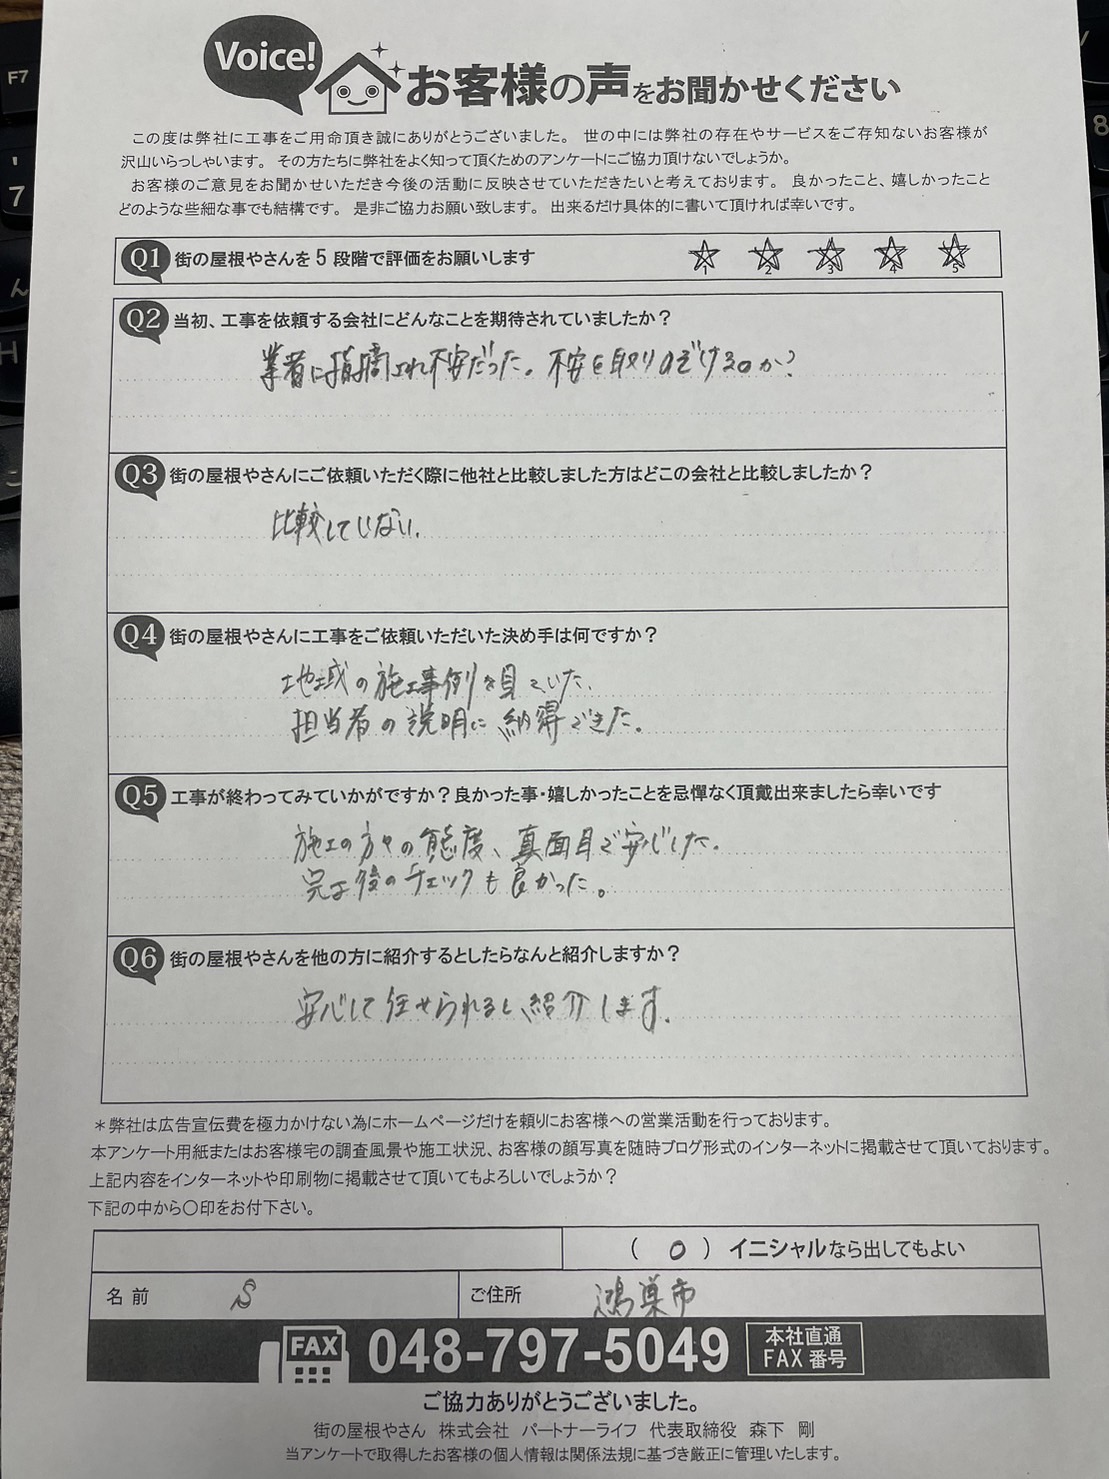 Voice!
お客様の声をお聞かせください
この度は弊社に工事をご用命頂き誠にありがとうございました。 世の中には弊社の存在やサービスをご存知ないお客様が
沢山いらっしゃいます。 その方たちに弊社をよく知って頂くためのアンケートにご協力頂けないでしょうか。
お客様のご意見をお聞かせいただき今後の活動に反映させていただきたいと考えております。 良かったこと、嬉しかったこと
どのような些細な事でも結構です。 是非ご協力お願い致します。 出来るだけ具体的に書いて頂ければ幸いです。
Q1 街の屋根やさんを 5 段階で評価をお願いします
1 2 3 4 5
Q2 当初、工事を依頼する会社にどんなことを期待されていましたか？
業者に指摘され不安だった。不安を取りのぞけるのか？
Q3 街の屋根やさんにご依頼いただく際に他社と比較しました方はどこの会社と比較しましたか？
比較していない。
Q4 街の屋根やさんに工事をご依頼いただいた決め手は何ですか？
地域の施工事例を見ていた。
担当者の説明に納得できた。
Q5 工事が終わってみていかがですか？良かった事・嬉しかったことを忌憚なく頂戴出来ましたら幸いです
施工の方々の態度、真面目で安心した。
完了後のチェックも良かった。
Q6 街の屋根やさんを他の方に紹介するとしたらなんと紹介しますか？
安心して任せられると紹介します。
＊弊社は広告宣伝費を極力かけない為にホームページだけを頼りにお客様への営業活動を行っております。
本アンケート用紙またはお客様宅の調査風景や施工状況、お客様の顔写真を随時ブログ形式のインターネットに掲載させて頂いております。
上記内容をインターネットや印刷物に掲載させて頂いてもよろしいでしょうか？
下記の中から〇印をお付下さい。
（ 〇 ）イニシャルなら出してもよい
名 前 S ご住所 鴻巣市
FAX 048-797-5049 本社直通 FAX 番号
ご協力ありがとうございました。
街の屋根やさん 株式会社 パートナーライフ 代表取締役 森下 剛
当アンケートで取得したお客様の個人情報は関係法規に基づき厳正に管理いたします。
F7
7
8
ん
H